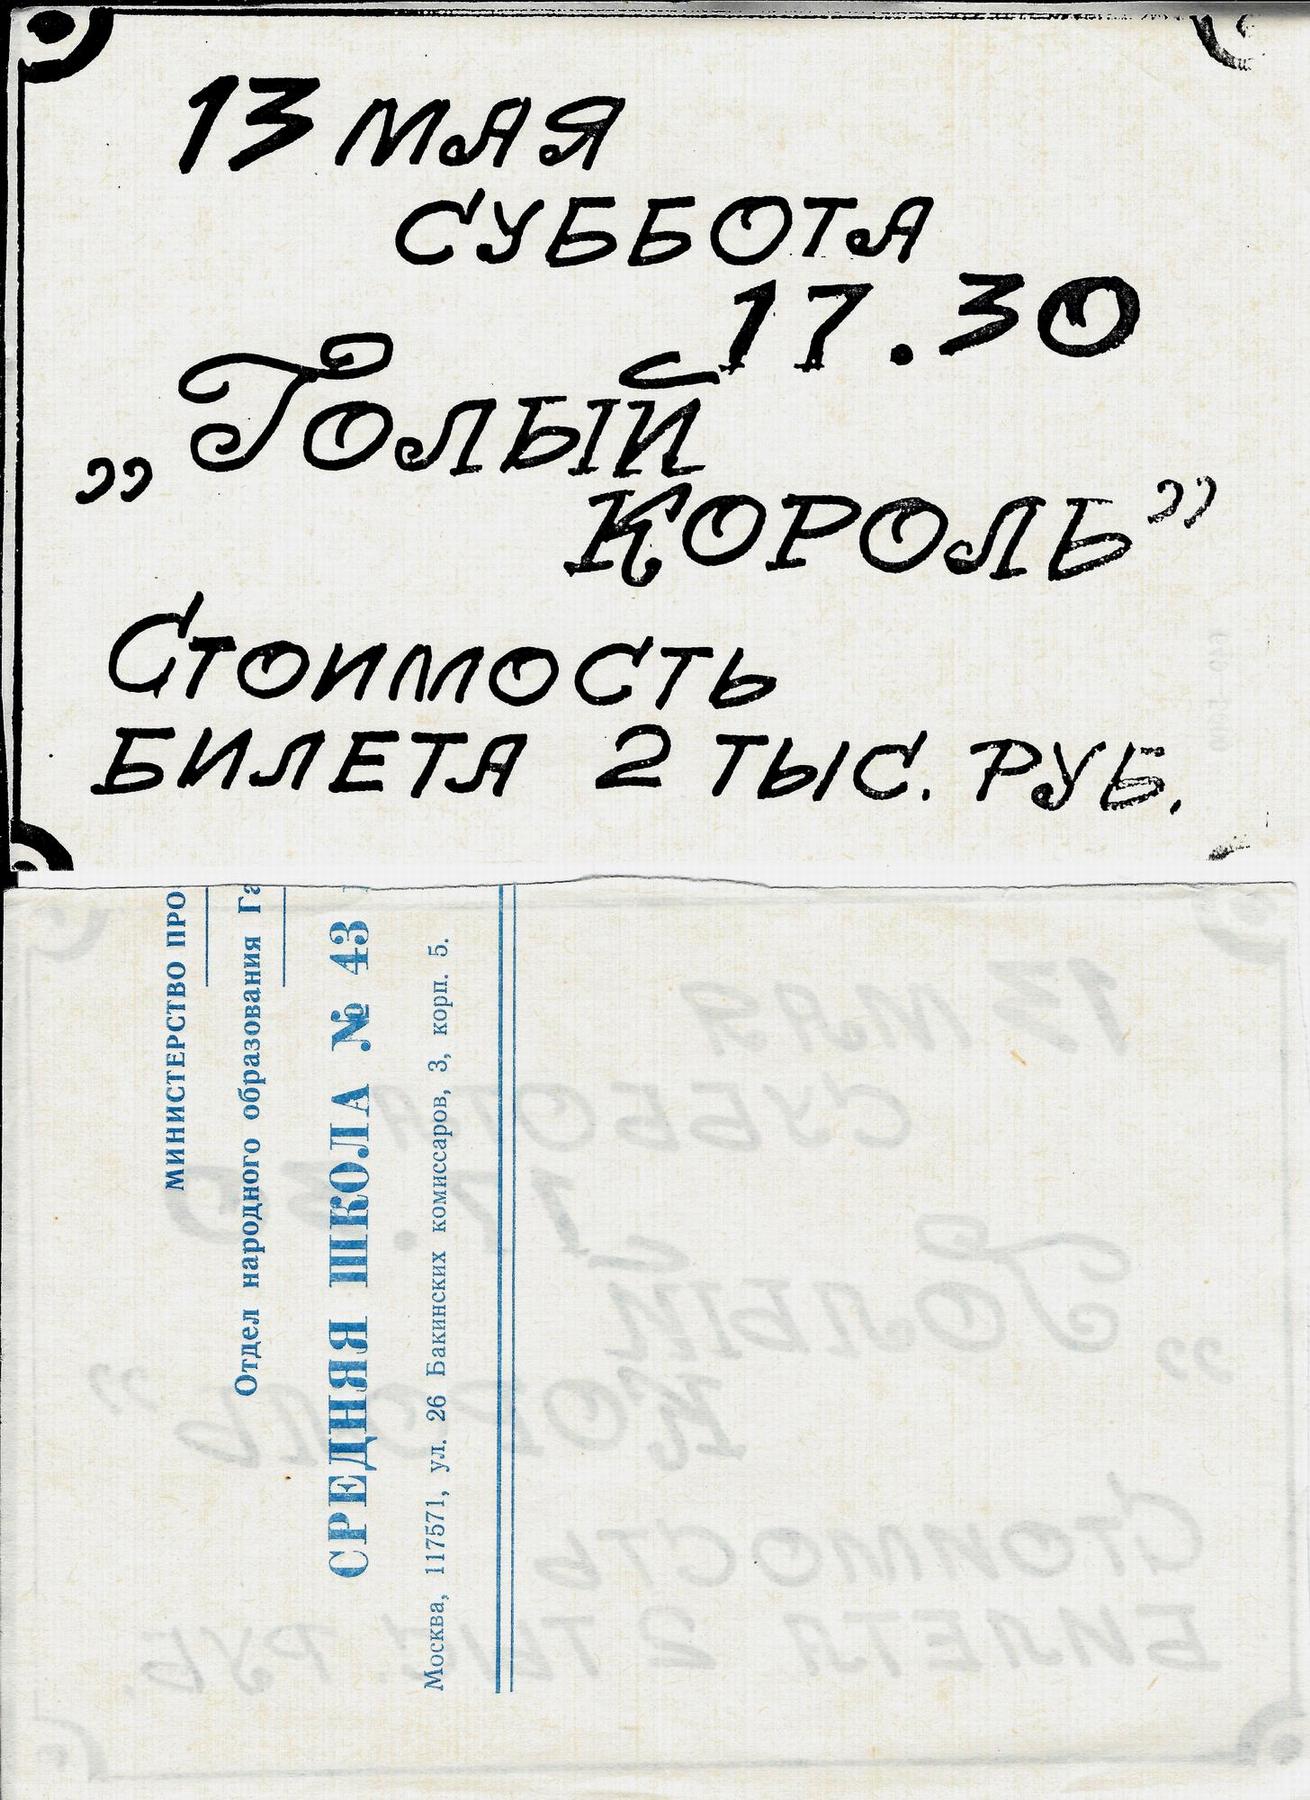 13 МАЯ
СУББОТА
17.30
„Голый
КОРОЛЬ”
Стоимость
БИЛЕТА 2 ТЫС. РУБ.
МИНИСТЕРСТВО ПРО
Отдел народного образования Га
СРЕДНЯЯ ШКОЛА № 43
Москва, 117571, ул. 26 Бакинских комиссаров, 3, корп. 5.